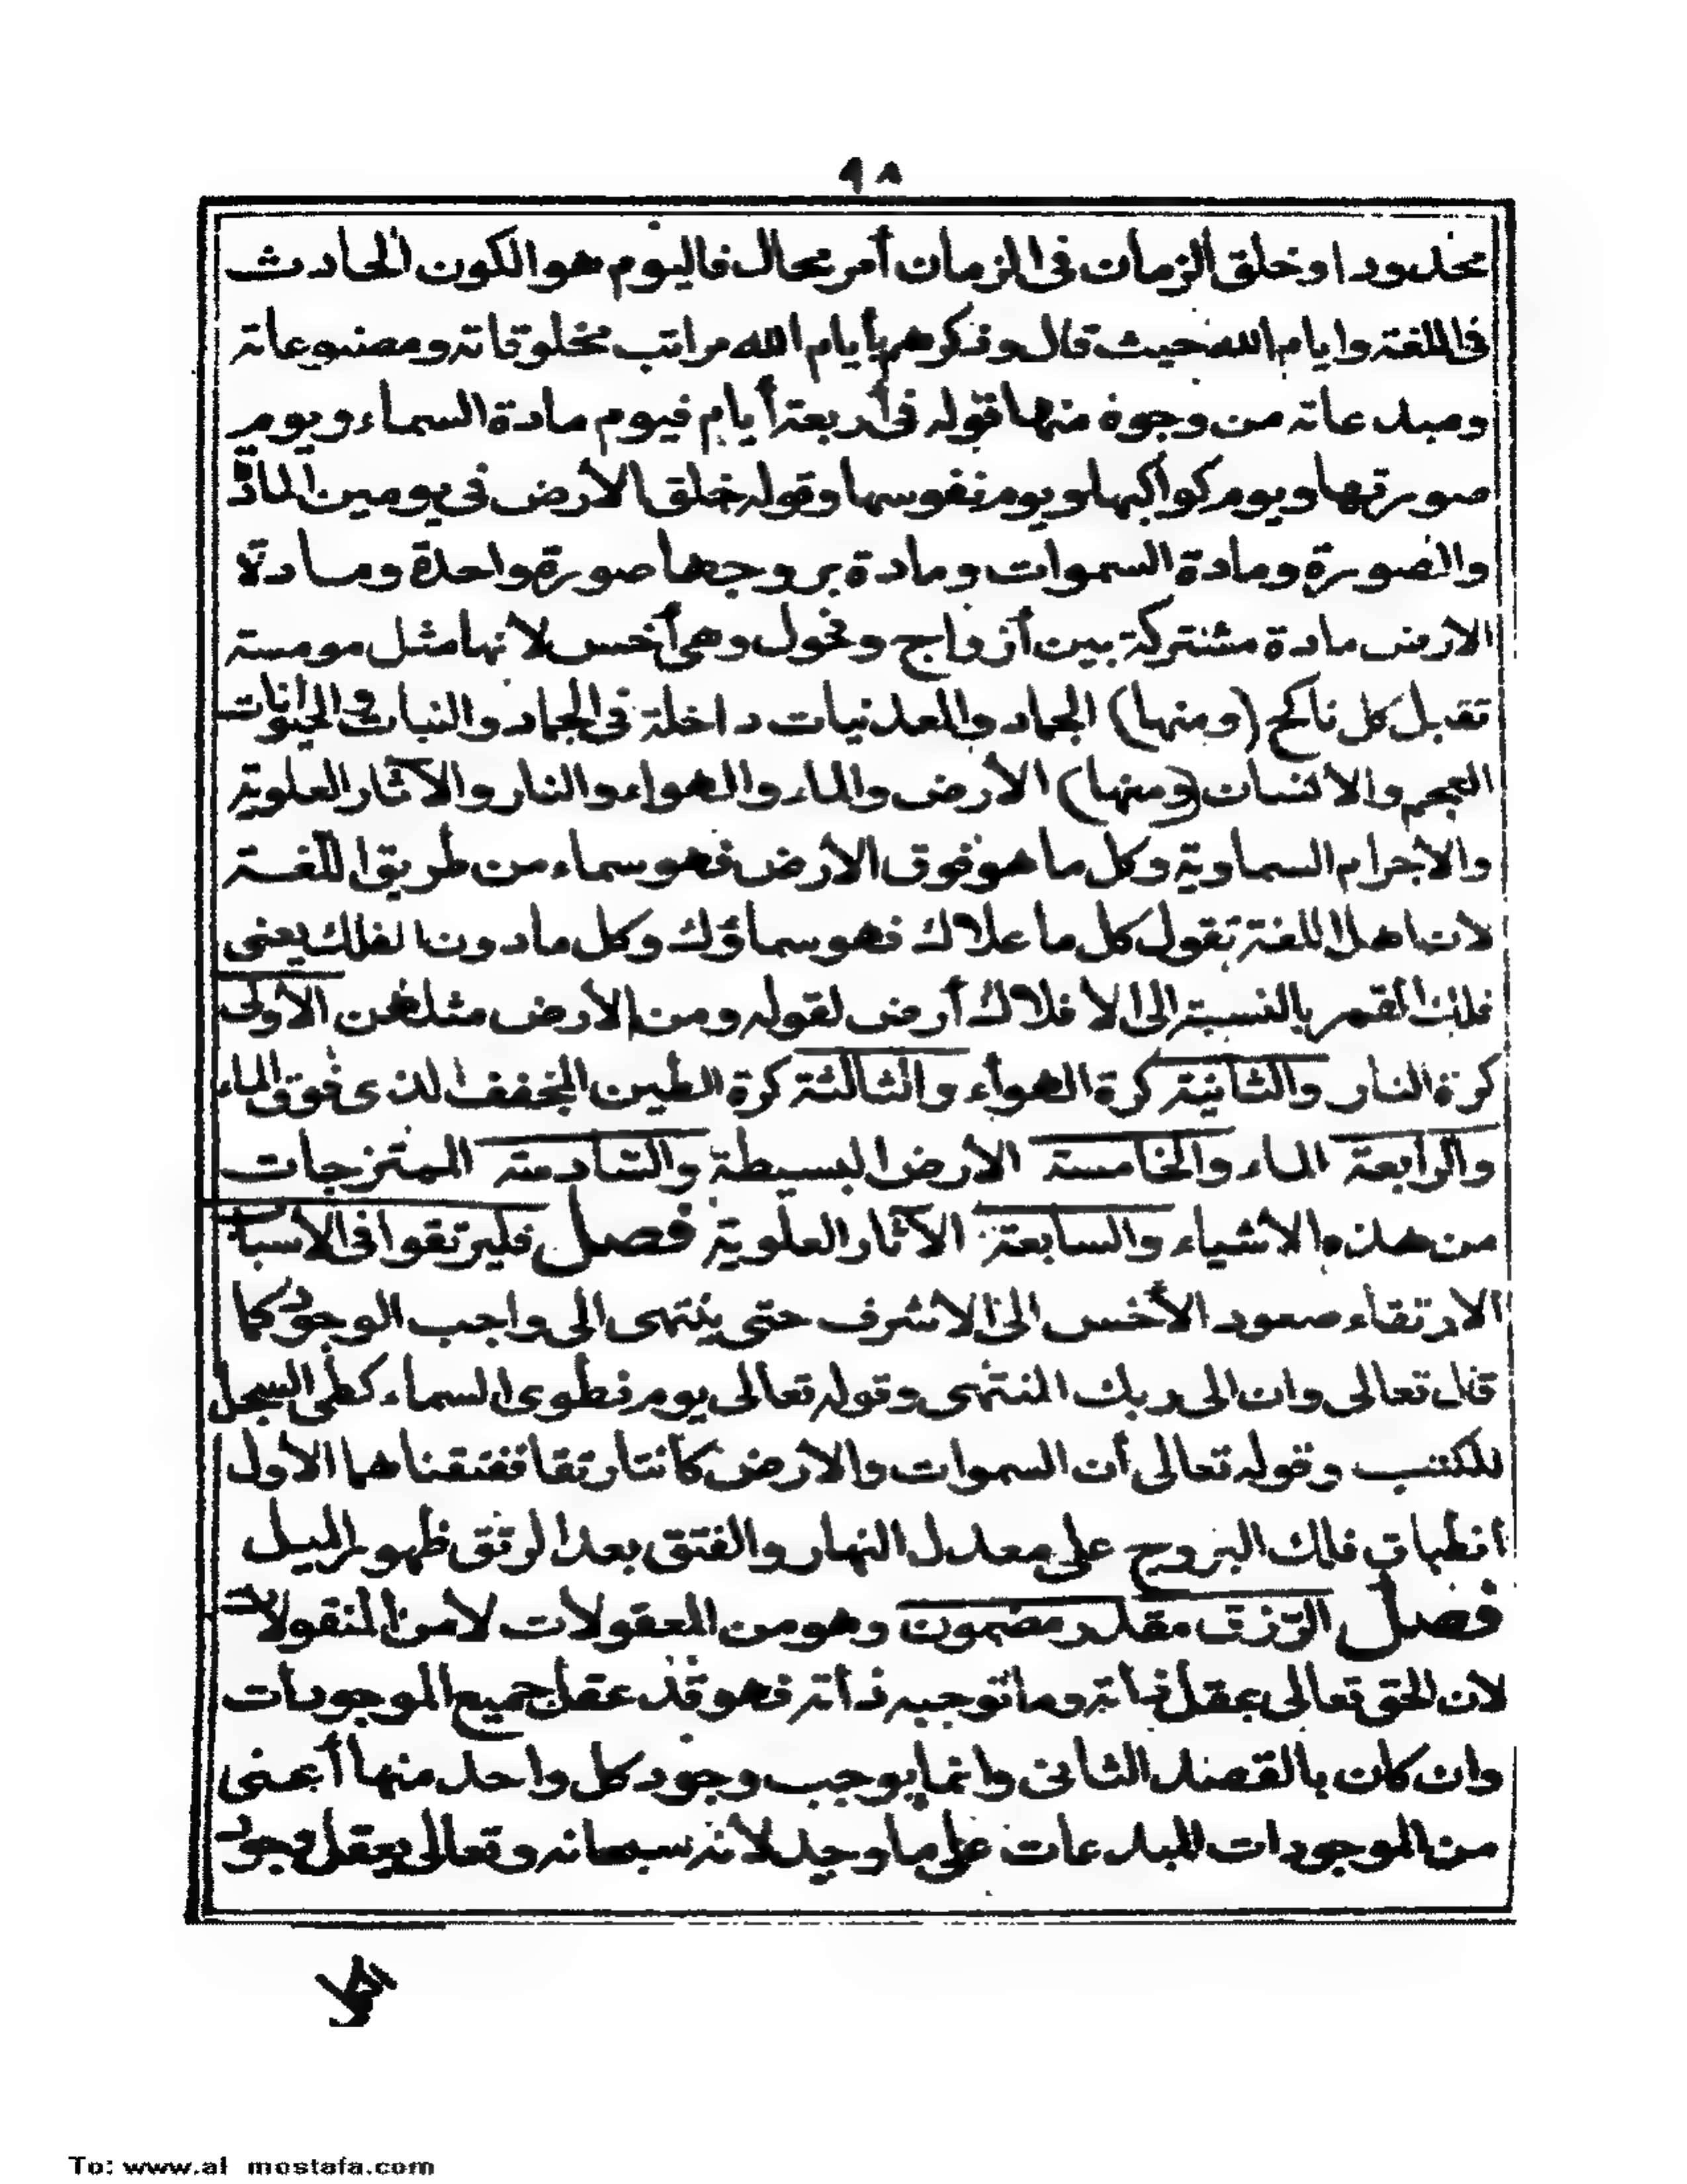 ٩٨
محدودا وخلق الزمان فى الزمان أمر محال فاليوم هو الكون الحادث
فى اللغة وايام الله حيث قال وذكرهم بأيام الله مراتب مخلوقاته ومصنوعاته
ومبدعاته من وجوه منها قوله فى أربعة أيام فيوم مادة السماء ويوم
صورتها ويوم كواكبها ويوم نفوسها وقوله خلق الأرض فى يومين المادة
والصورة ومادة السموات ومادة بروجها صورة واحدة ومادة
الارض مادة مشتركة بين أزواج وفحول وهى أخس لأنها مثل مومسة
تقبل كل ناكح (ومنها) الجماد والمعدنيات داخلة فى الجماد والنبات والحيوانات
العجم والانسان (ومنها) الأرض والماء والهواء والنار والآثار العلوية
والأجرام السماوية وكل ما هو فوق الأرض فهو سماء من طريق اللغة
لان اهل اللغة تقول كل ما علاك فهو سماؤك وكل مادون الفلك يعنى
فلك القمر بالنسبة إلى الأفلاك أرض لقوله ومن الأرض مثلهن الأولى
كرة النار والثانية كرة الهواء والثالثة كرة الطين المجفف الذى فوق الماء
والرابعة الماء والخامسة الأرض البسيطة والسادسة الممتزجات
من هذه الاشياء والسابعة الآثار العلوية فصل فليرتقوا فى الأسباب
الارتقاء صعود الأخس الى الاشرف حتى ينتهى الى واجب الوجود كما
قال تعالى وان الى ربك المنتهى وقوله تعالى يوم نطوى السماء كطى السجل
للكتب وقوله تعالى أن السموات والارض كانتا رتقا ففتقناهما الأول
انطباق فلك البروج على معدل النهار والفتق بعد الرتق ظهور الميل
فصل الرزق مقدر مضمون وهو من المعقولات لا من المنقولات
لان الحق تعالى عقل ذاته وما توجبه ذاته فهو قد عقل جميع الموجودات
وان كان بالقصد الثانى وانما يوجب وجود كل واحد منها أعنى
من الموجودات المبدعات على ما وجد لأنه سبحانه وتعالى يعقل وجود
To: www.al mostafa.com